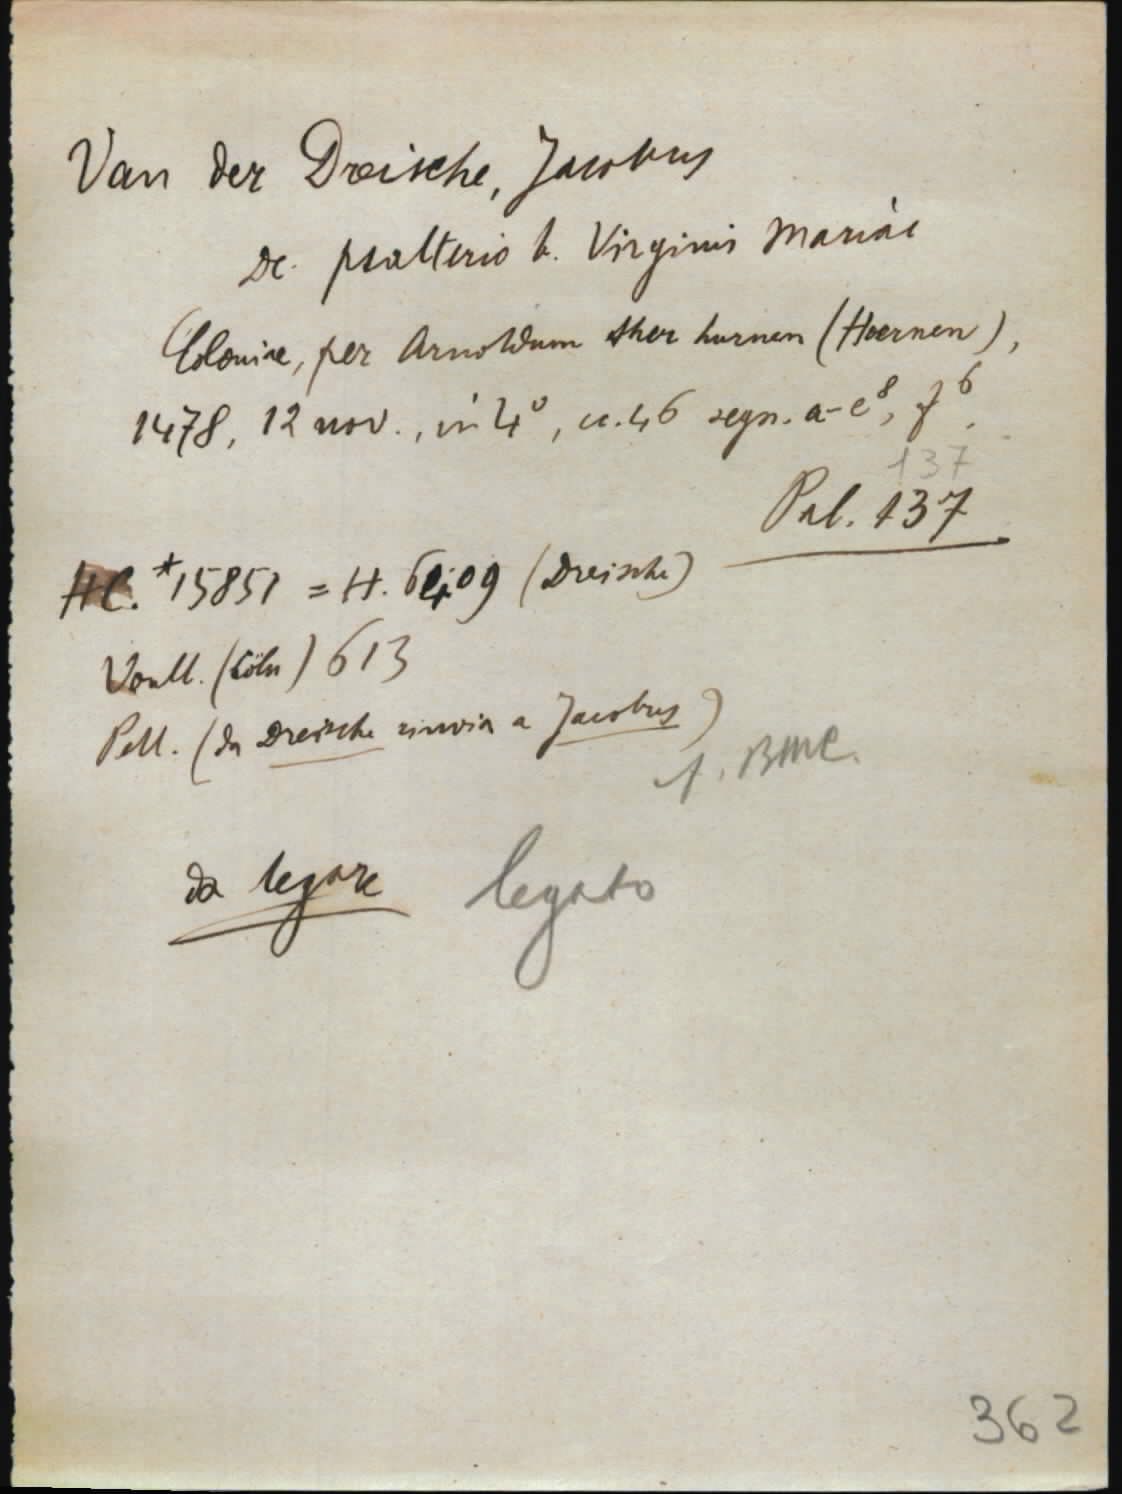 Van der Dreische, Jacobus
De psalterio b. Virginis Mariae
Coloniae, per Arnoldum ther hurnen (Hoernen),
1478, 12 nov., in 4º, cc. 46 segn. a-e⁸, f⁶.
137
Pal. 137
HC. *15851 = H. 6409 (Dreische)
Voull. (Cöln) 613
Pell. (da Dreische rinvia a Jacobus)
BMC.
da legare legato
362